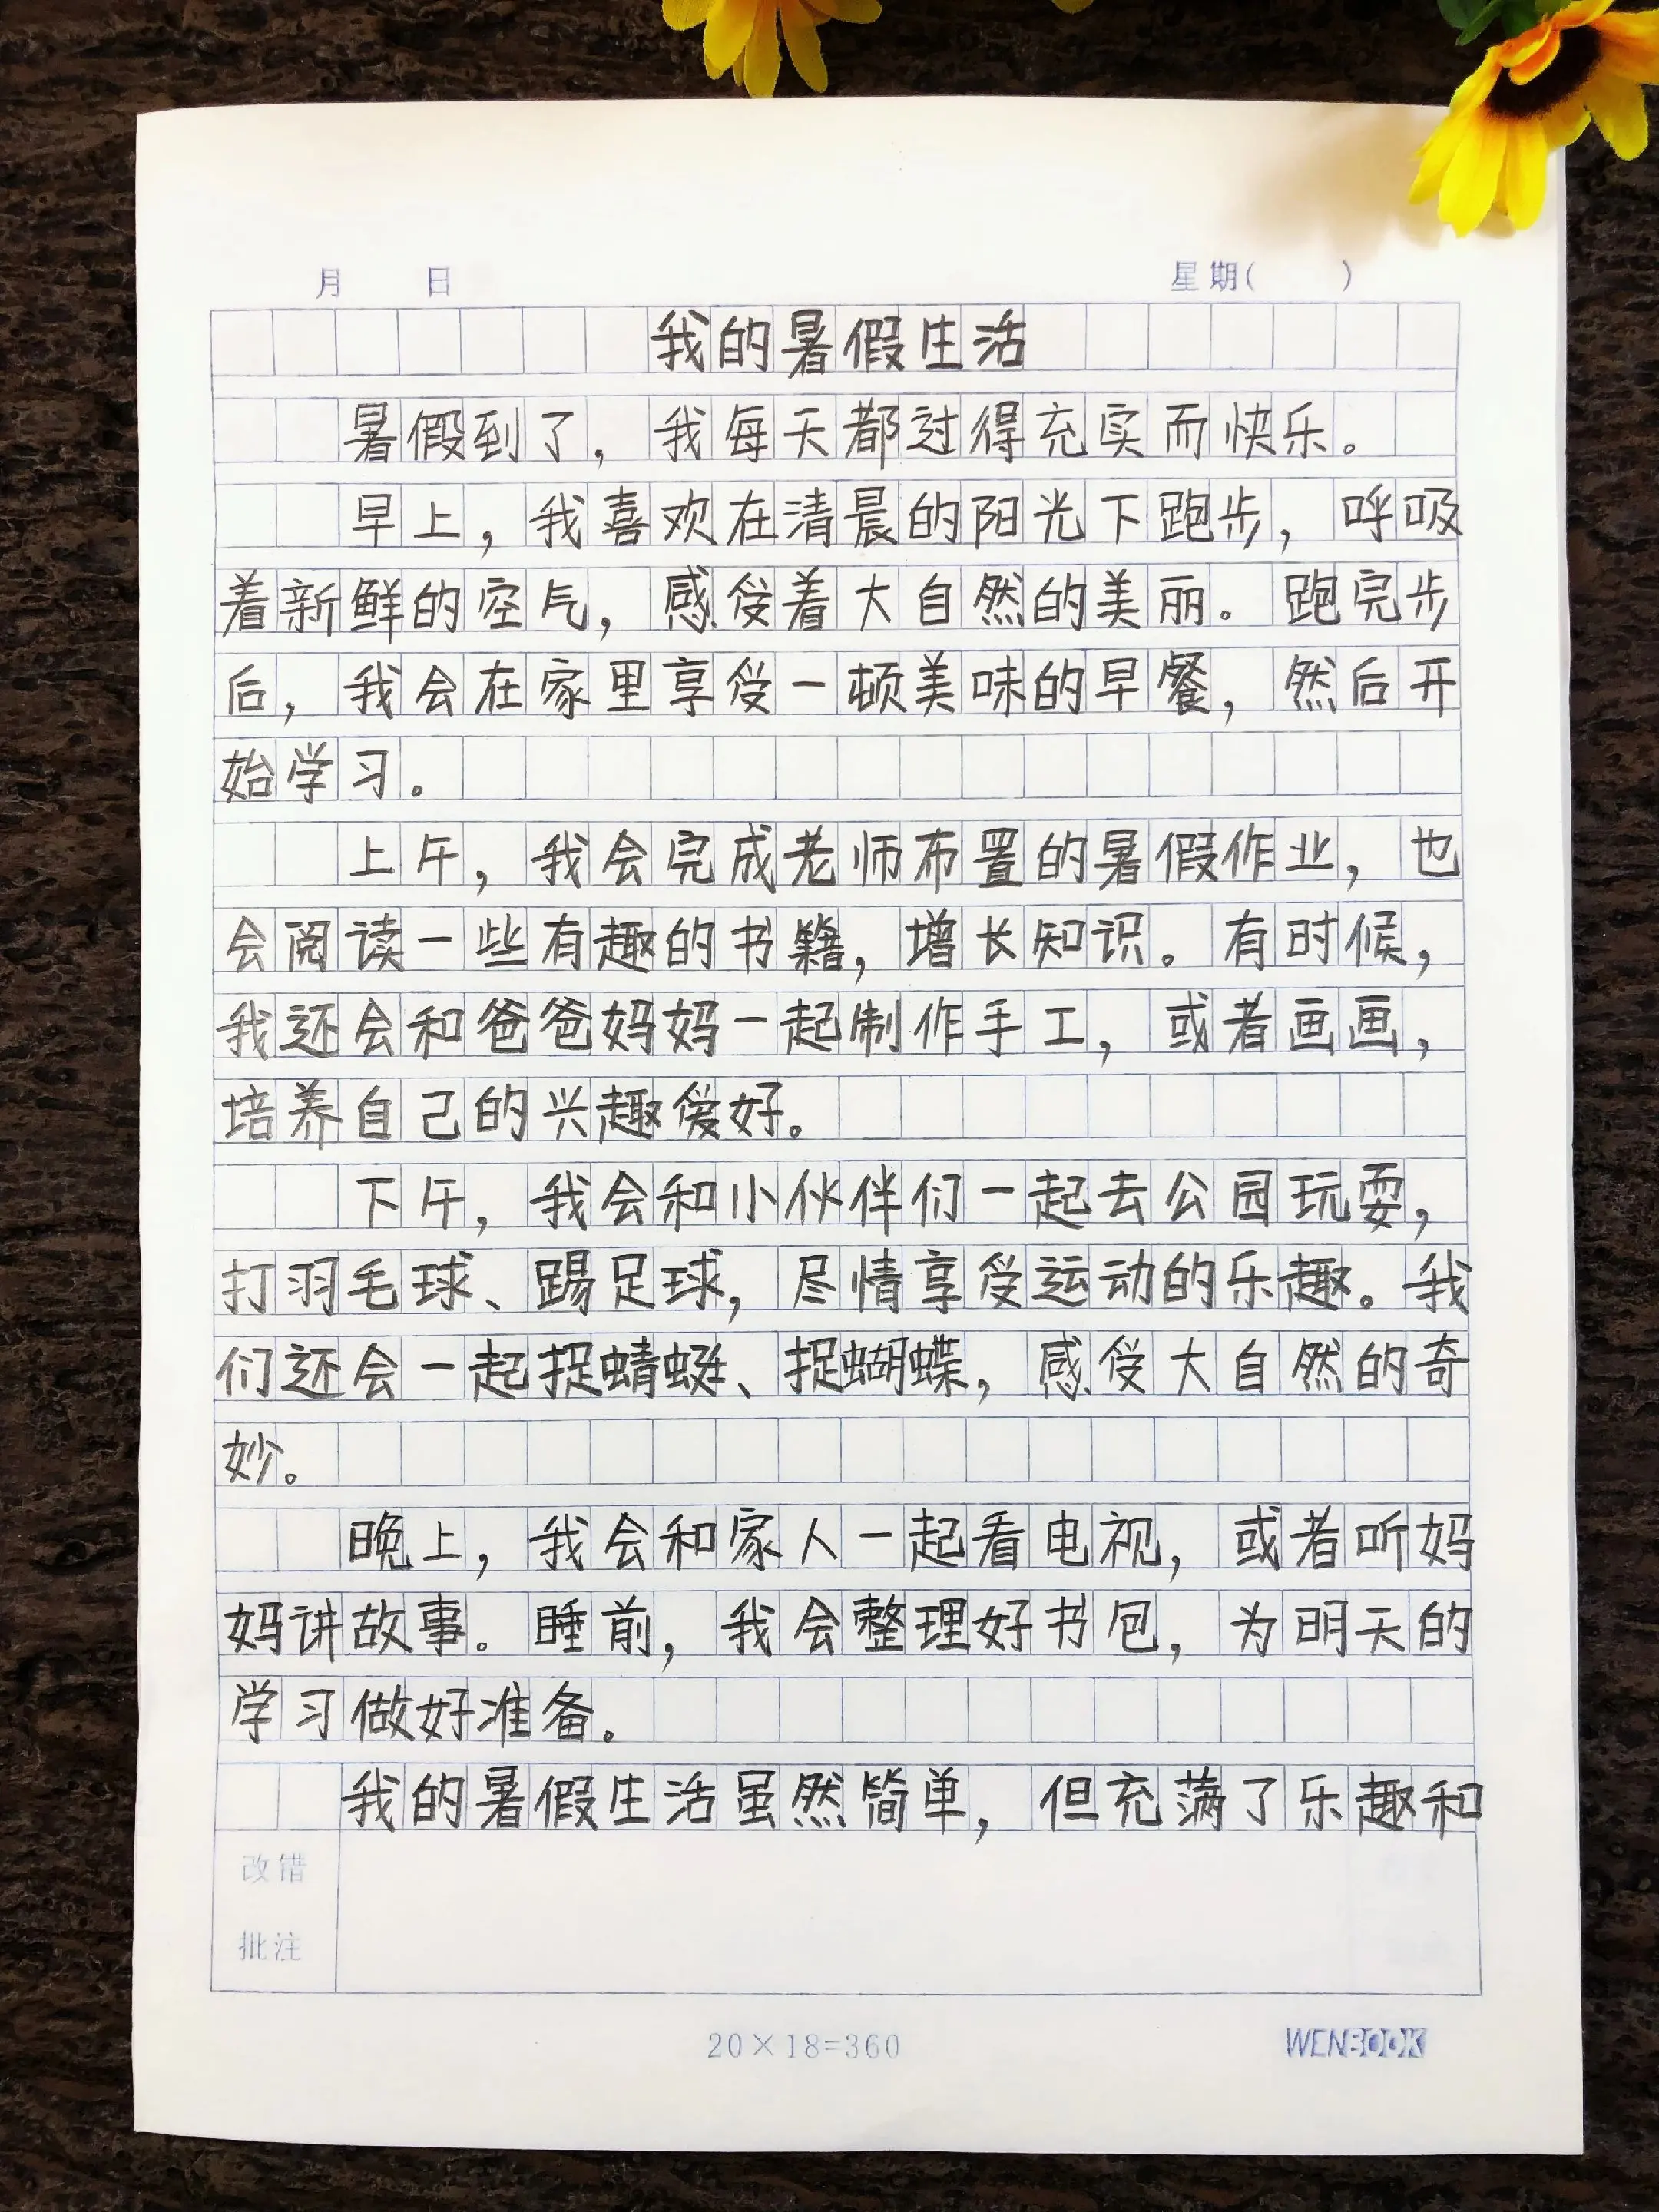 月 日 星期( )
我的暑假生活
暑假到了，我每天都过得充实而快乐。
早上，我喜欢在清晨的阳光下跑步，呼吸
着新鲜的空气，感受着大自然的美丽。跑完步
后，我会在家里享受一顿美味的早餐，然后开
始学习。
上午，我会完成老师布置的暑假作业，也
会阅读一些有趣的书籍，增长知识。有时候，
我还会和爸爸妈妈一起制作手工，或者画画，
培养自己的兴趣爱好。
下午，我会和小伙伴们一起去公园玩耍，
打羽毛球、踢足球，尽情享受运动的乐趣。我
们还会一起捉蜻蜓、捉蝴蝶，感受大自然的奇
妙。
晚上，我会和家人一起看电视，或者听妈
妈讲故事。睡前，我会整理好书包，为明天的
学习做好准备。
我的暑假生活虽然简单，但充满了乐趣和
改错
批注
20×18=360 WENBOOK